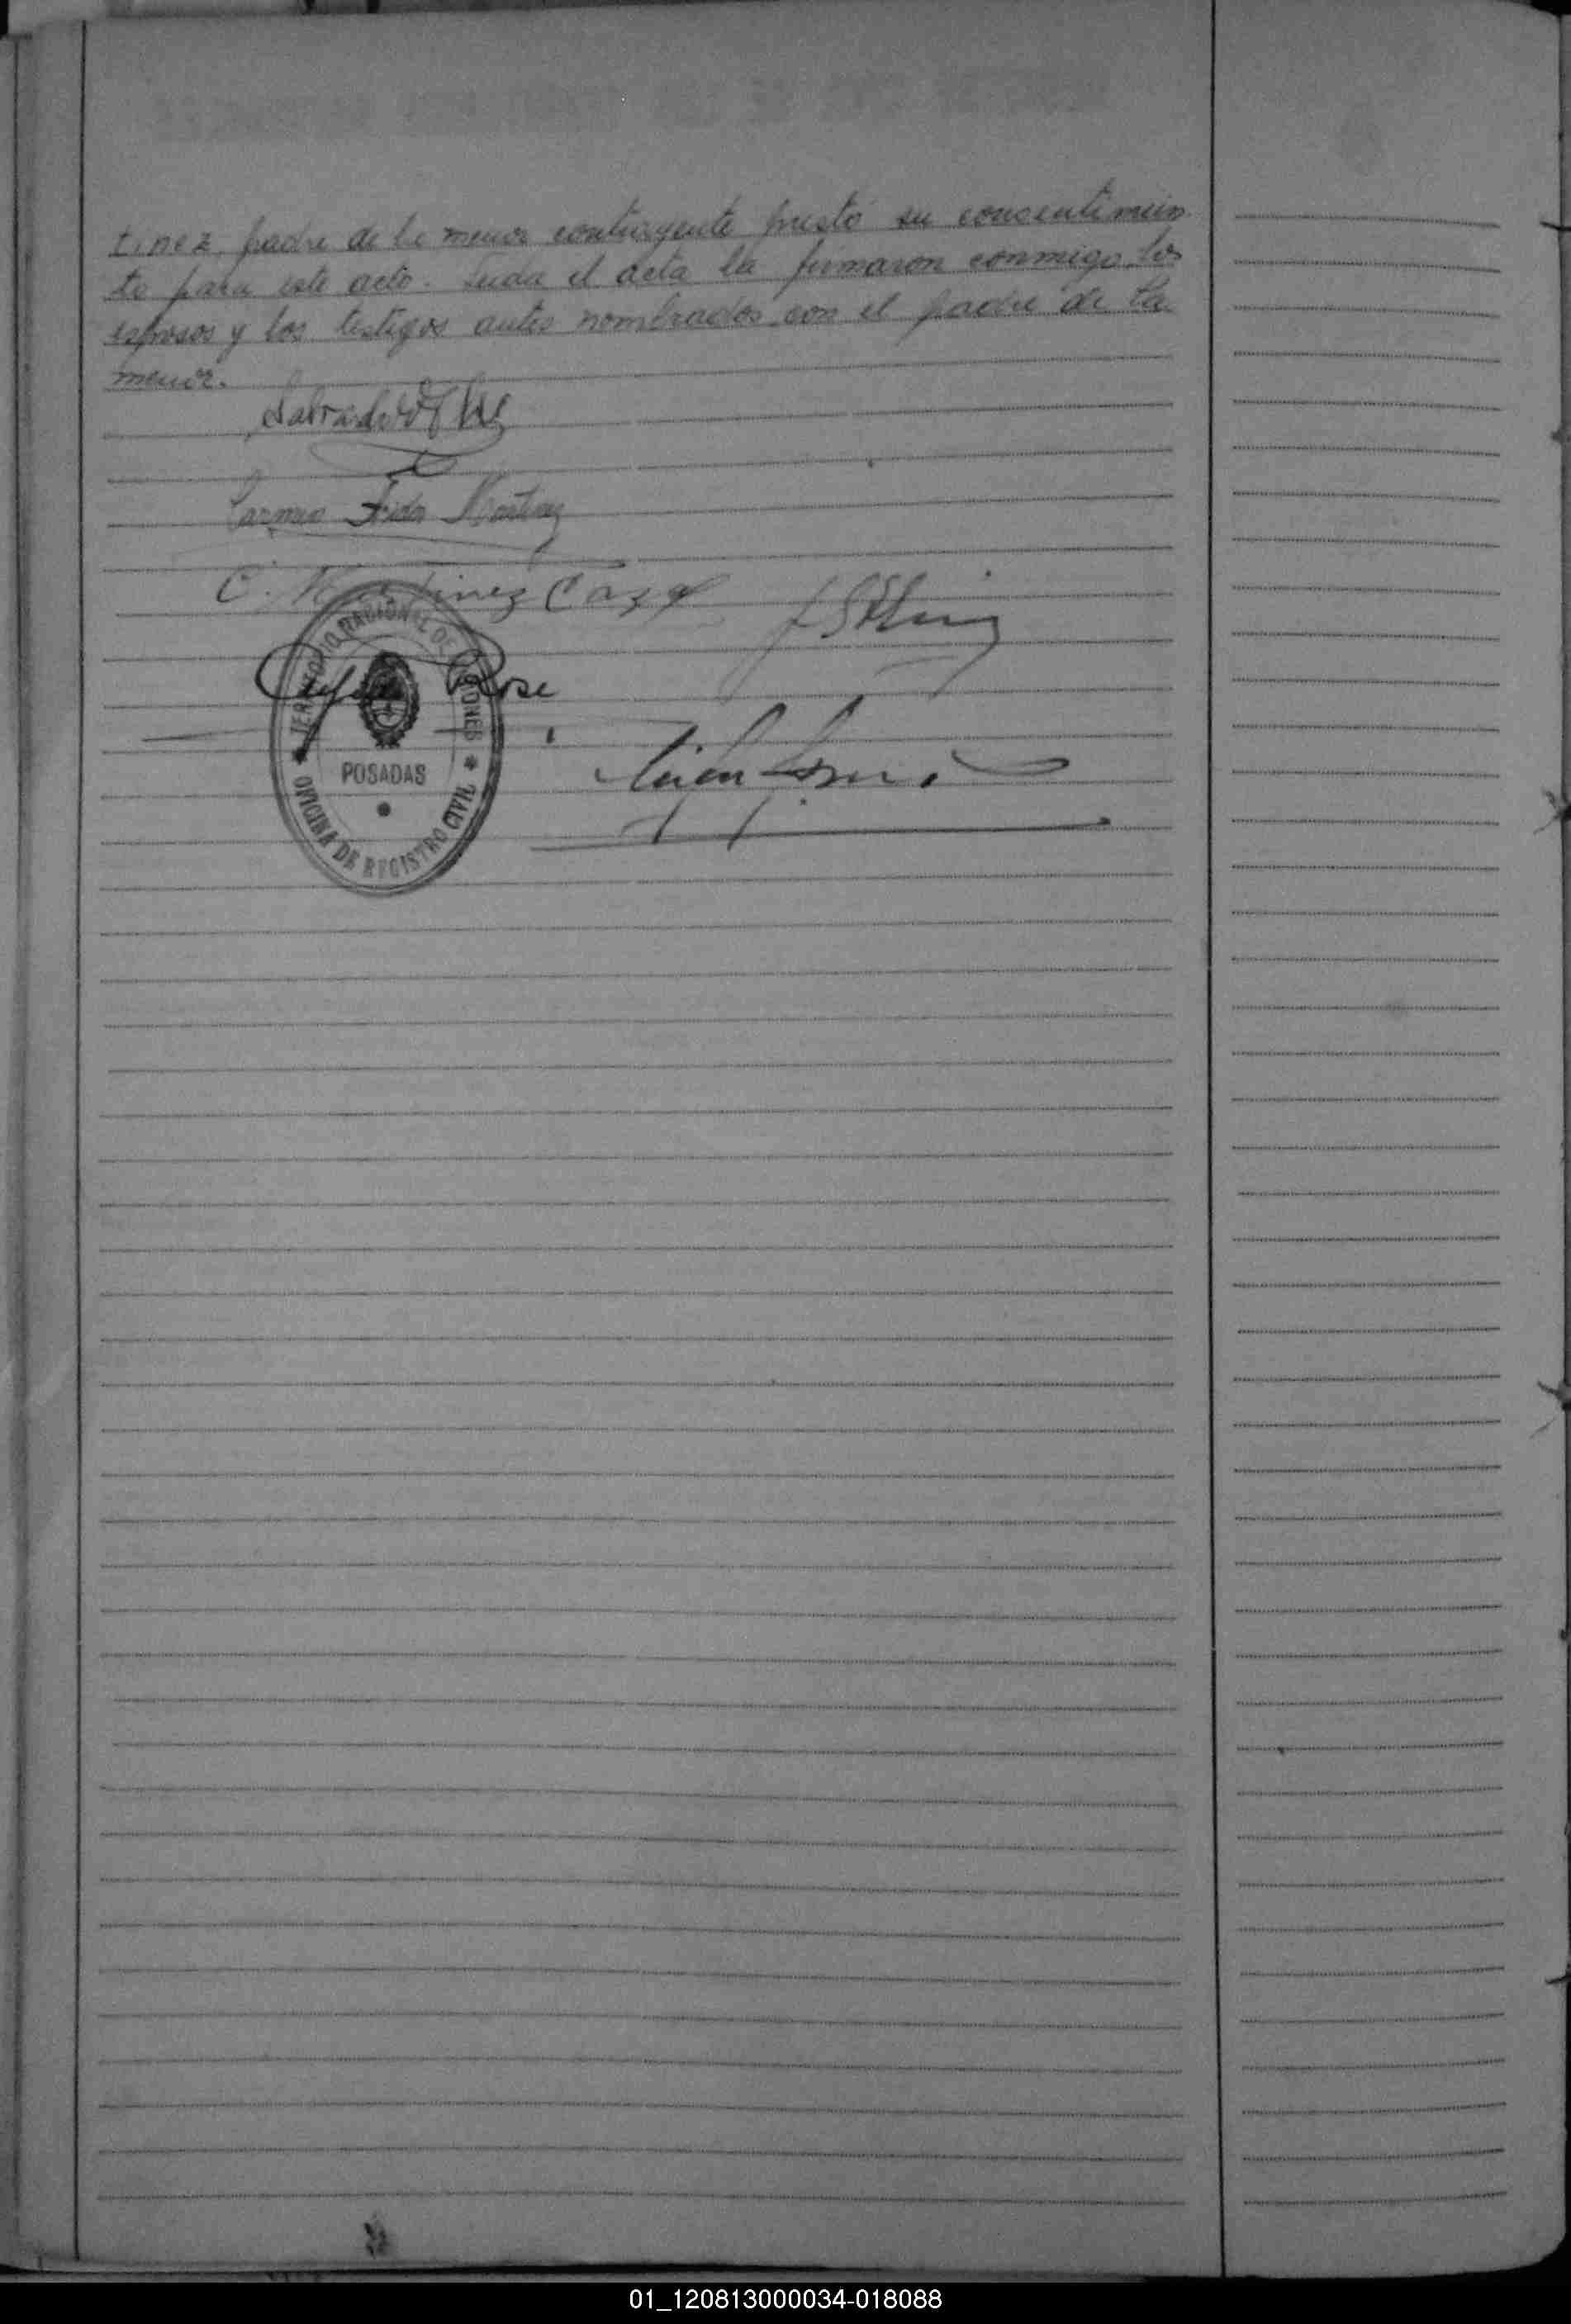 tinez, padre de la menor contrayente prestó su consentimien
to para este acto. Leida el acta la firmaron conmigo los
esposos y los testigos antes nombrados con el padre de la
menor.
Salvador
Carmen Frida Martinez
C. Martinez Casa
Rose
TERRITORIO NACIONAL DE MISIONES
POSADAS
OFICINA DE REGISTRO CIVIL
01_120813000034-018088